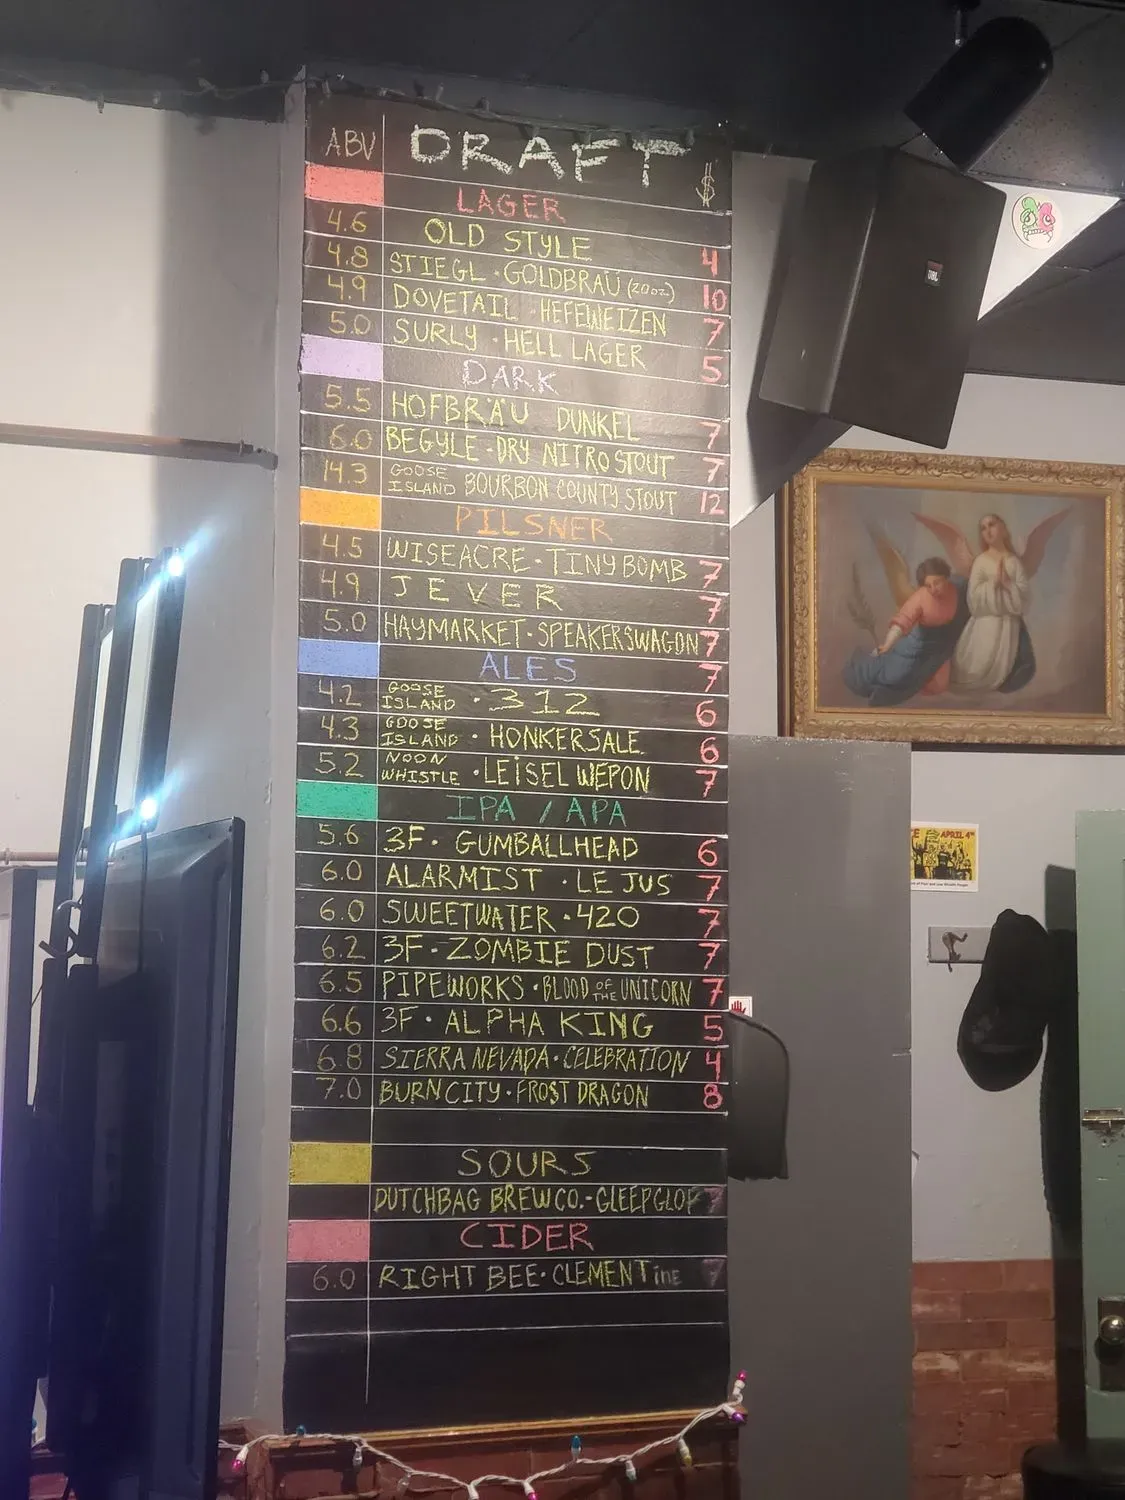 ABV DRAFT $
LAGER
4.6 OLD STYLE 4
4.8 STIEGL · GOLDBRAÜ (20oz) 10
4.9 DOVETAIL · HEFEWEIZEN 7
5.0 SURLY · HELL LAGER 5
DARK
5.5 HOFBRÄU DUNKEL 7
6.0 BEGYLE · DRY NITRO STOUT 7
14.3 GOOSE ISLAND BOURBON COUNTY STOUT 12
PILSNER
4.5 WISEACRE · TINY BOMB 7
4.9 JEVER 7
5.0 HAYMARKET · SPEAKERSWAGON 7
ALES 7
4.2 GOOSE ISLAND · 312 6
4.3 GOOSE ISLAND · HONKERSALE 6
5.2 NOON WHISTLE · LEISEL WEPON 7
IPA / APA
5.6 3F · GUMBALLHEAD 6
6.0 ALARMIST · LE JUS 7
6.0 SWEETWATER · 420 7
6.2 3F · ZOMBIE DUST 7
6.5 PIPEWORKS · BLOOD OF THE UNICORN 7
6.6 3F · ALPHA KING 5
6.8 SIERRA NEVADA · CELEBRATION 4
7.0 BURN CITY · FROST DRAGON 8
SOURS
DUTCHBAG BREW CO. - GLEEPGLOP 7
CIDER
6.0 RIGHT BEE · CLEMENTinE 7
JBL
APRIL 4TH